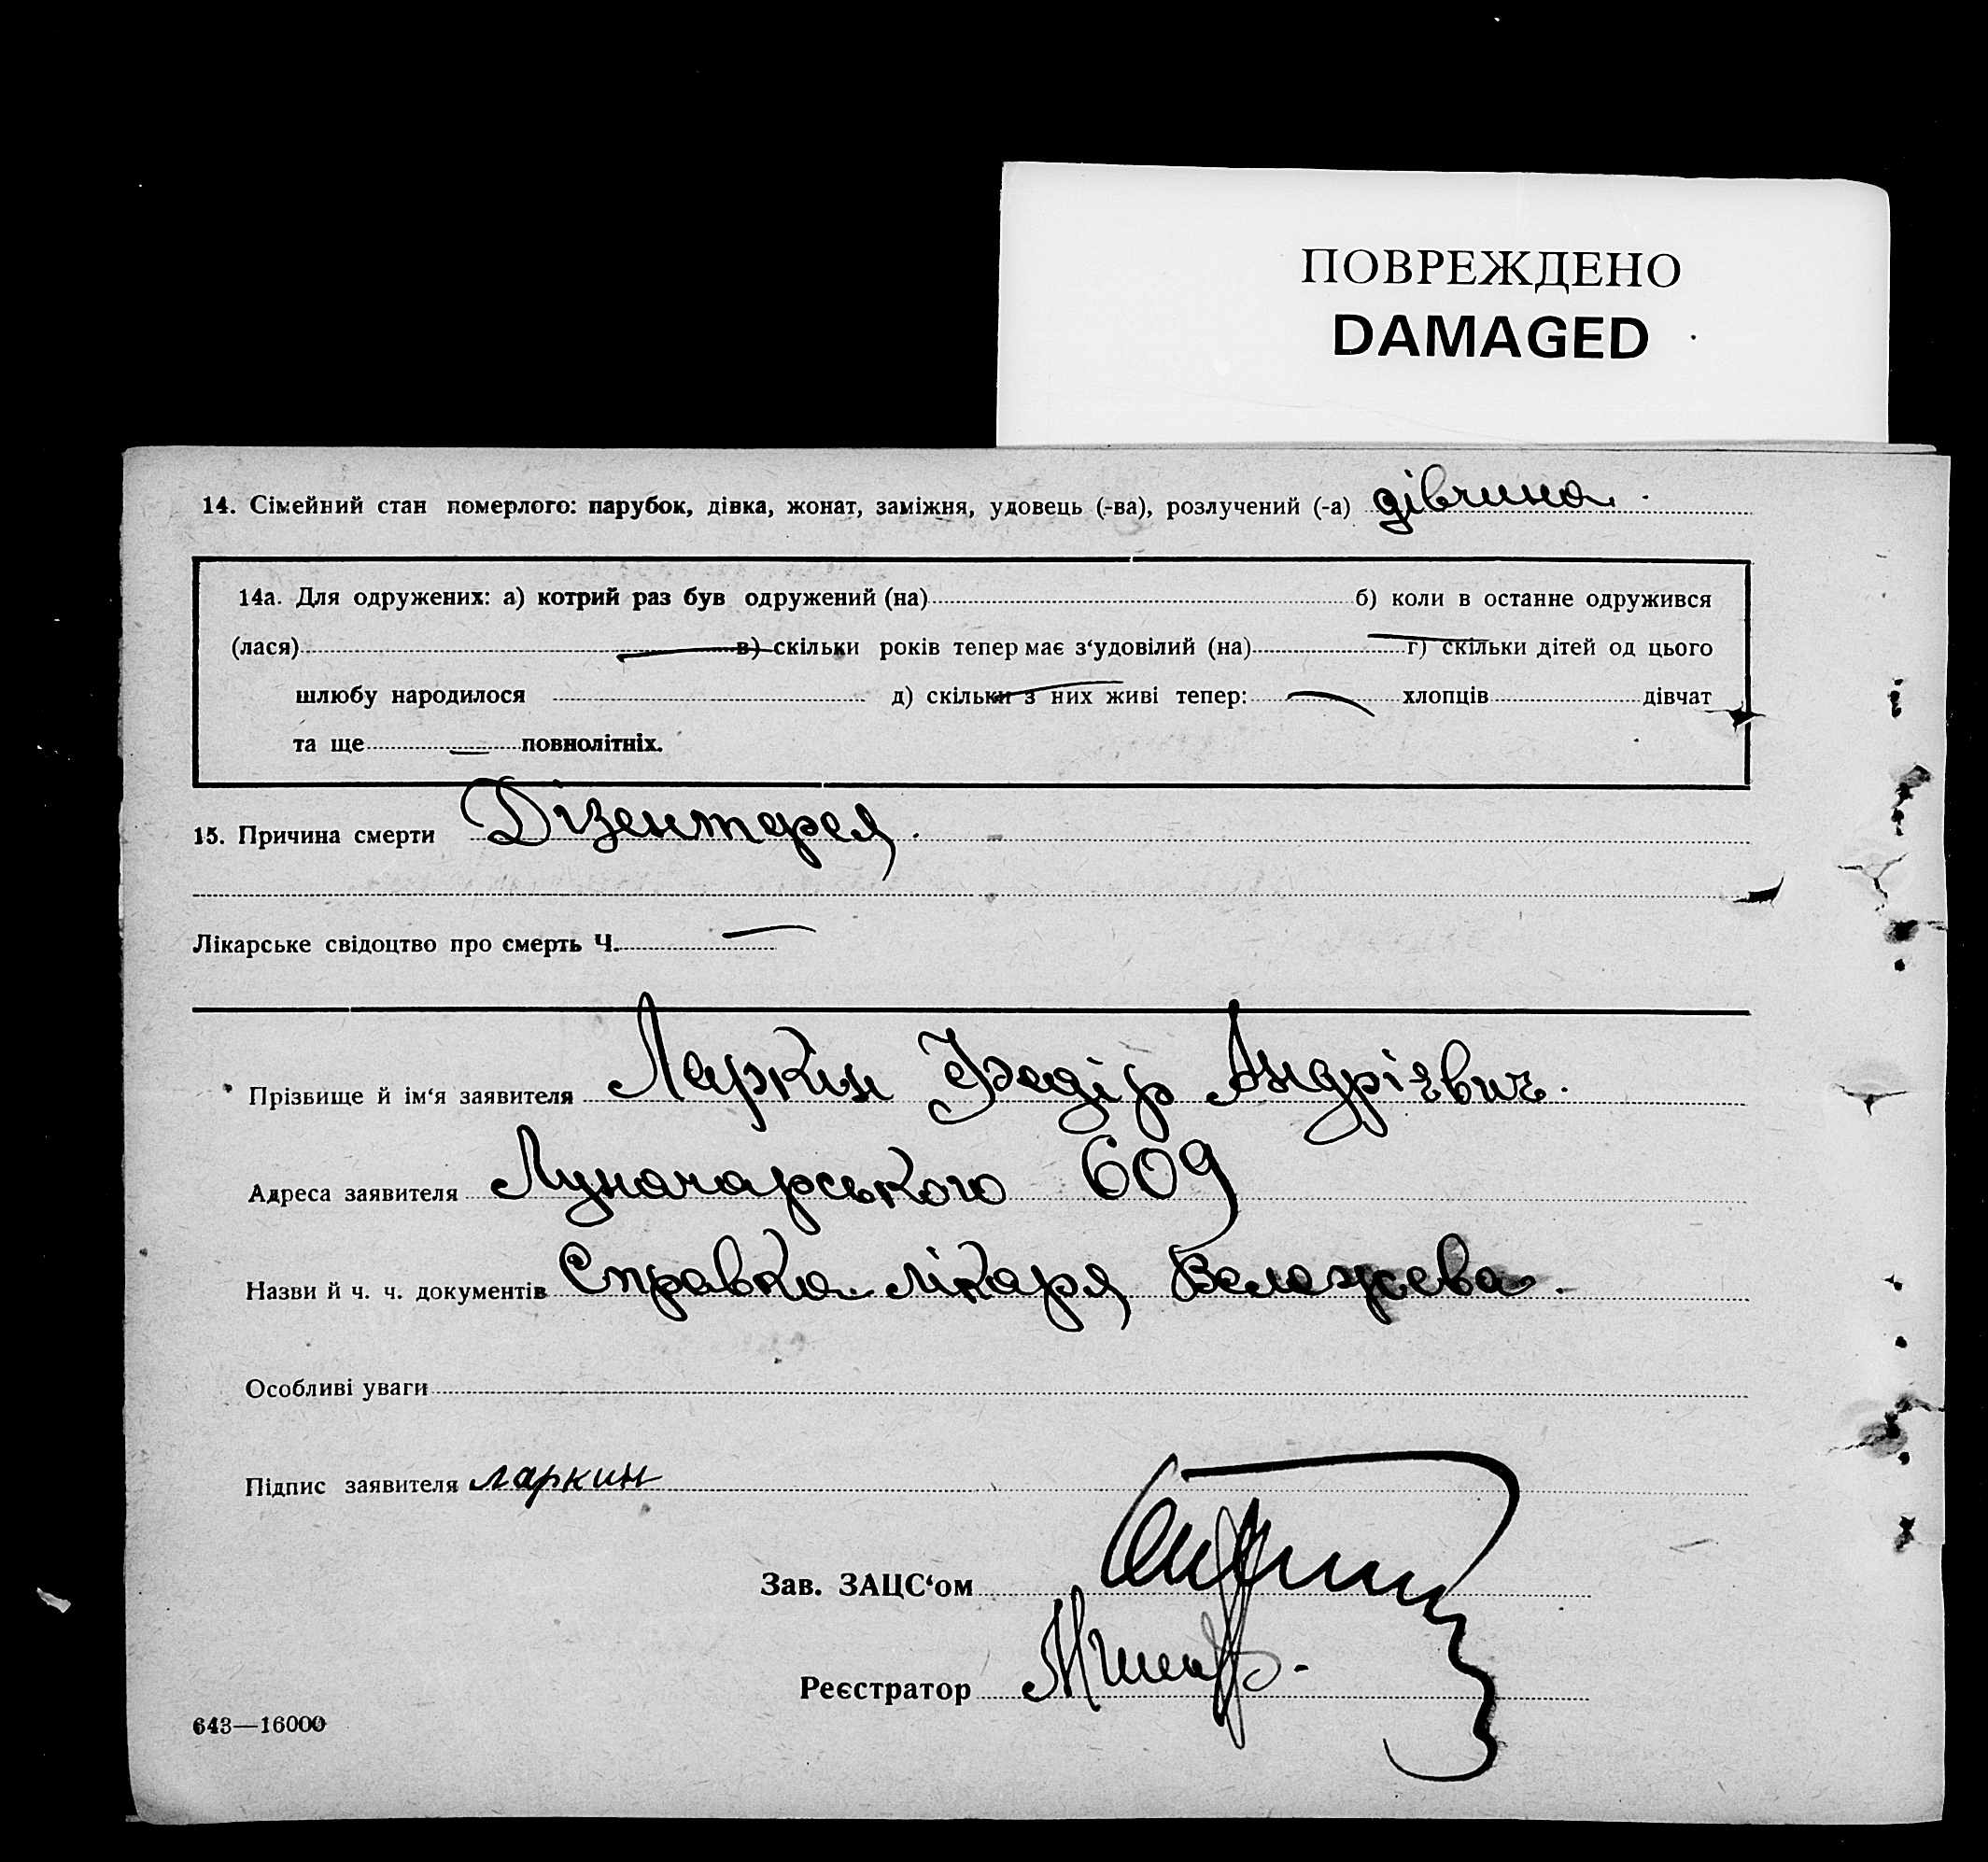 ПОВРЕЖДЕНО
DAMAGED
14. Сімейний стан померлого: парубок, дівка, жонат, заміжня, удовець (-ва), розлучений (-а) дівчина.
14а. Для одружених: а) котрий раз був одружений (на) б) коли в останне одружився
(лася) в) скільки років тепер має з‘удовілий (на) г) скільки дітей од цього
шлюбу народилося д) скільки з них живі тепер: хлопців дівчат
та ще повнолітніх.
15. Причина смерти Дізентерея.
Лікарське свідоцтво про смерть Ч.
Прізвище й ім‘я заявителя Ларкин Федір Андрієвич.
Адреса заявителя Луначарського 609
Назви й ч. ч. документів Справка лікаря
Особливі уваги
Підпис заявителя Ларкин
Зав. ЗАЦС‘ом
Реєстратор
643—16000